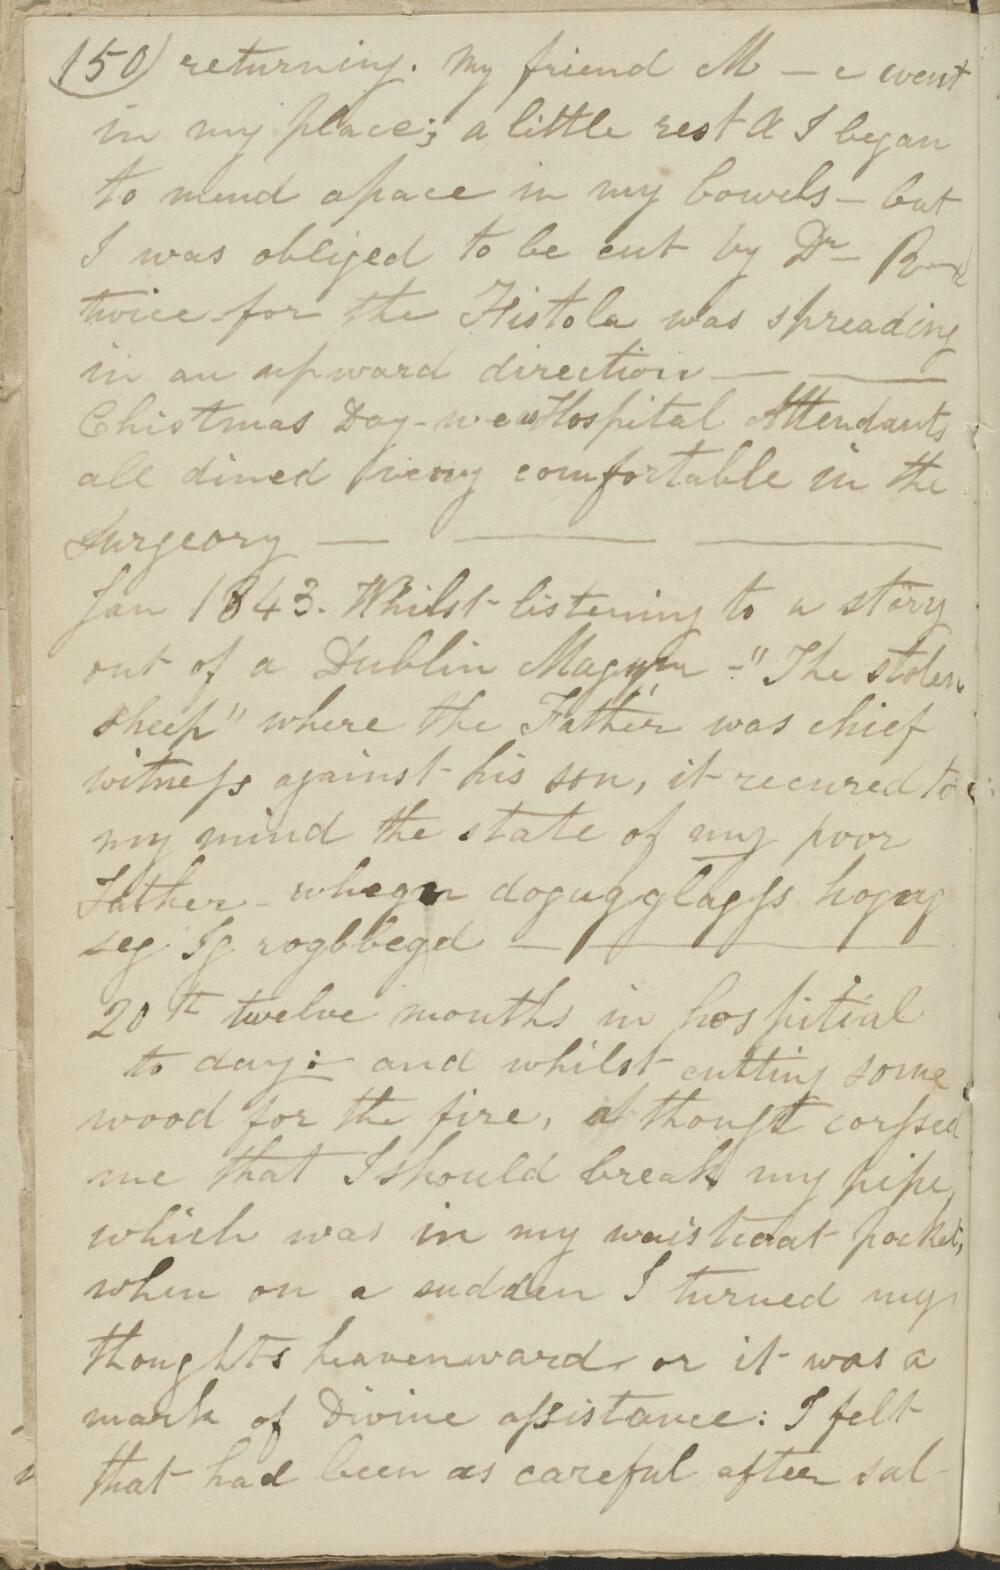 (150) returning. My friend M — c went
in my place; a little rest & I began
to mend apace in my bowels – but
I was obliged to be cut by Dr – R—
twice for the Fistola was spreading
in an upward direction — —
Chistmas Day – we Hospital Attendants
all dined very comfortable in the
Surgeory — — —
Jan 1843. Whilst listening to a story
out of a Dublin – "The stolen
sheep" where the Father was chief
witness against his son, it recured to
my mind the state of my poor
Father – whegn dogugglagss hogug
seg Ig rogbbegd — —
20th twelve months in hospitial
to day: and whilst cutting some
wood for the fire, a thougt corssed
me that I should break my pipe,
which was in my waistcoat pocket,
when on a sudden I turned my
thoughts heavenward or it was a
mark of Divine assistance: I felt
that had been as careful after sal-